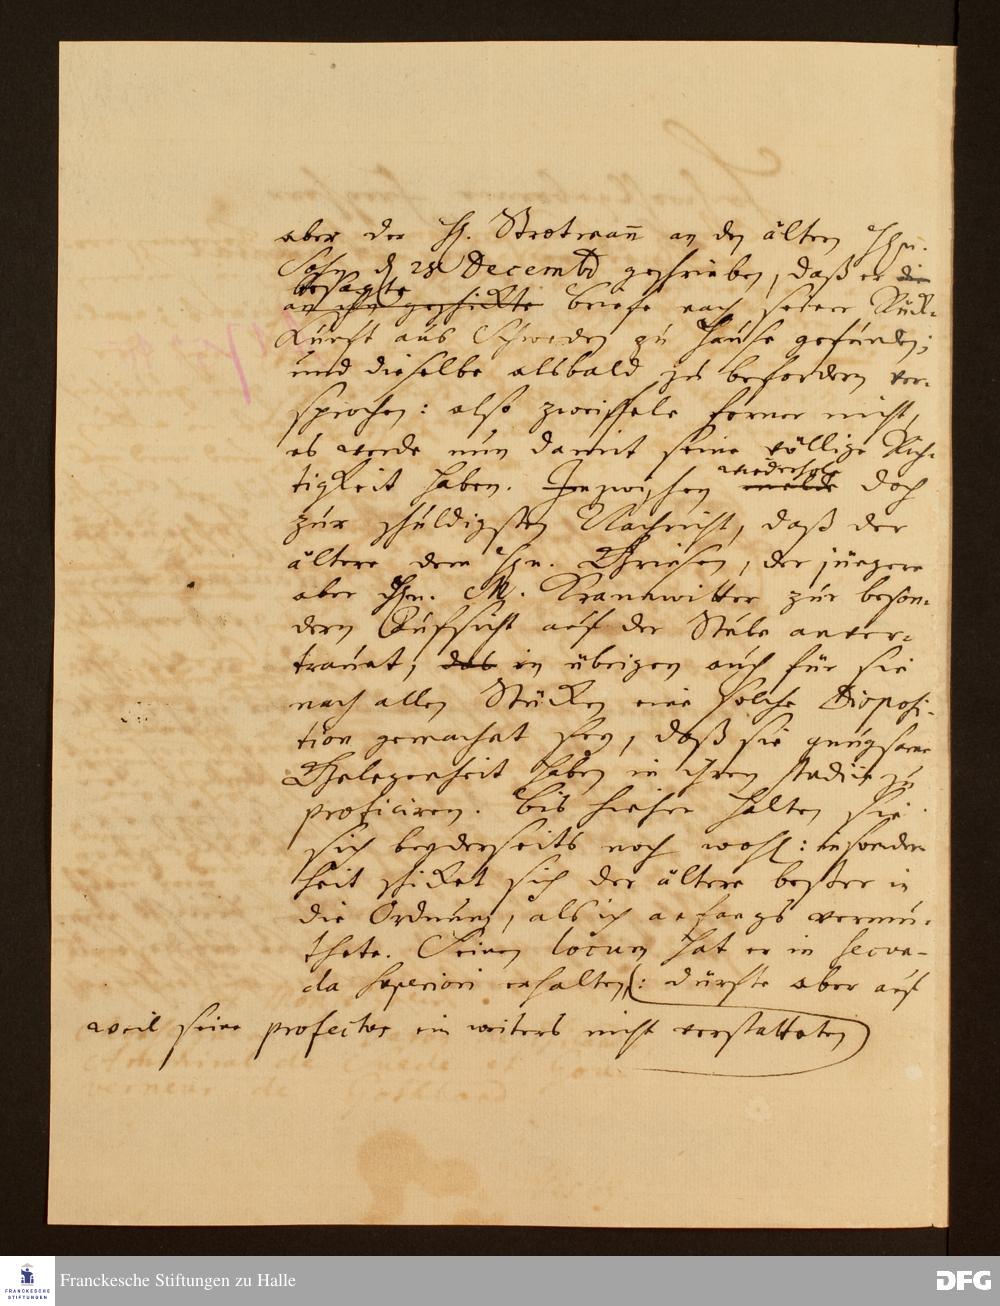 aber der H. Strotmann an den ältern Hhn.
Sohn d. 28 Decembr. geschrieben, daß er die
besagte
an ihn geschickte briefe nach seiner Rück-
kunfft aus Schweden zu Hause gefunden;
und dieselbe alsbald zu befordern ver-
sprochen: also zweiffele ferner nicht,
es werde nun damit seine völlige Rich-
tigkeit haben. Inzwischen
wiederhole
melde doch
zur schuldigsten Nachricht, daß der
ältere dem Hhn. Griesen, der jüngere
aber Hhn. M. Krannwitter zur beson-
dern Aufsicht auf der Stube anver-
trauet, das in übrigen auch für sie
nach allen Stücken eine solche Disposi-
tion gemachet sey, daß sie gnugsame
Gelegenheit haben in ihren studiis zu
proficiren. Bis hieher halten sie
sich beyderseits noch wohl: insonder-
heit schicket sich der ältere besser in
die Ordnung, als ich anfangs vermu-
thete. Seinen locum hat er in secun-
da superiori erhalten: dürfte aber auch
weil seine profectus ein weiters nicht verstatteten
Franckesche Stiftungen zu Halle
FRANCKESCHE
STIFTUNGEN
DFG